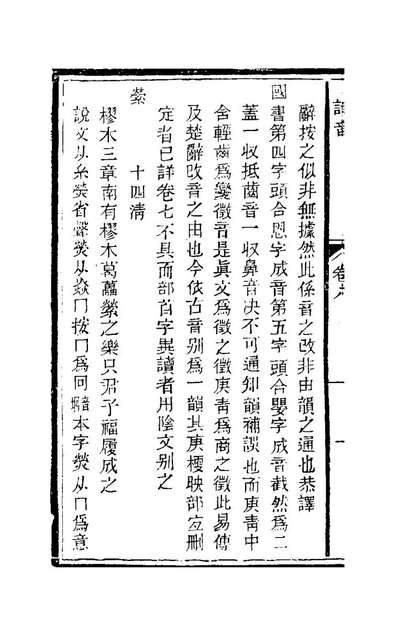 辭按之似非無據然此係音之改非由韻之通也恭譯
國書第四字頭合恩字成音第五字頭合嬰字成音截然為二
蓋一收抵齒音一收鼻音决不可通知韻補誤也而庚青中
含輕齒為變徵音是眞文為徵之徵庚青為商之徵此易傳
及楚辭改音之由也今依古音别為一韻其庚梗映部宜刪
定者已詳卷七不具而部首字異讀者用陰文别之
十四清
縈
樛木三章南有樛木葛藟縈之樂只君子福履成之
說文从糸熒省聲熒从焱冂按冂為冋音坰本字熒从冂為意